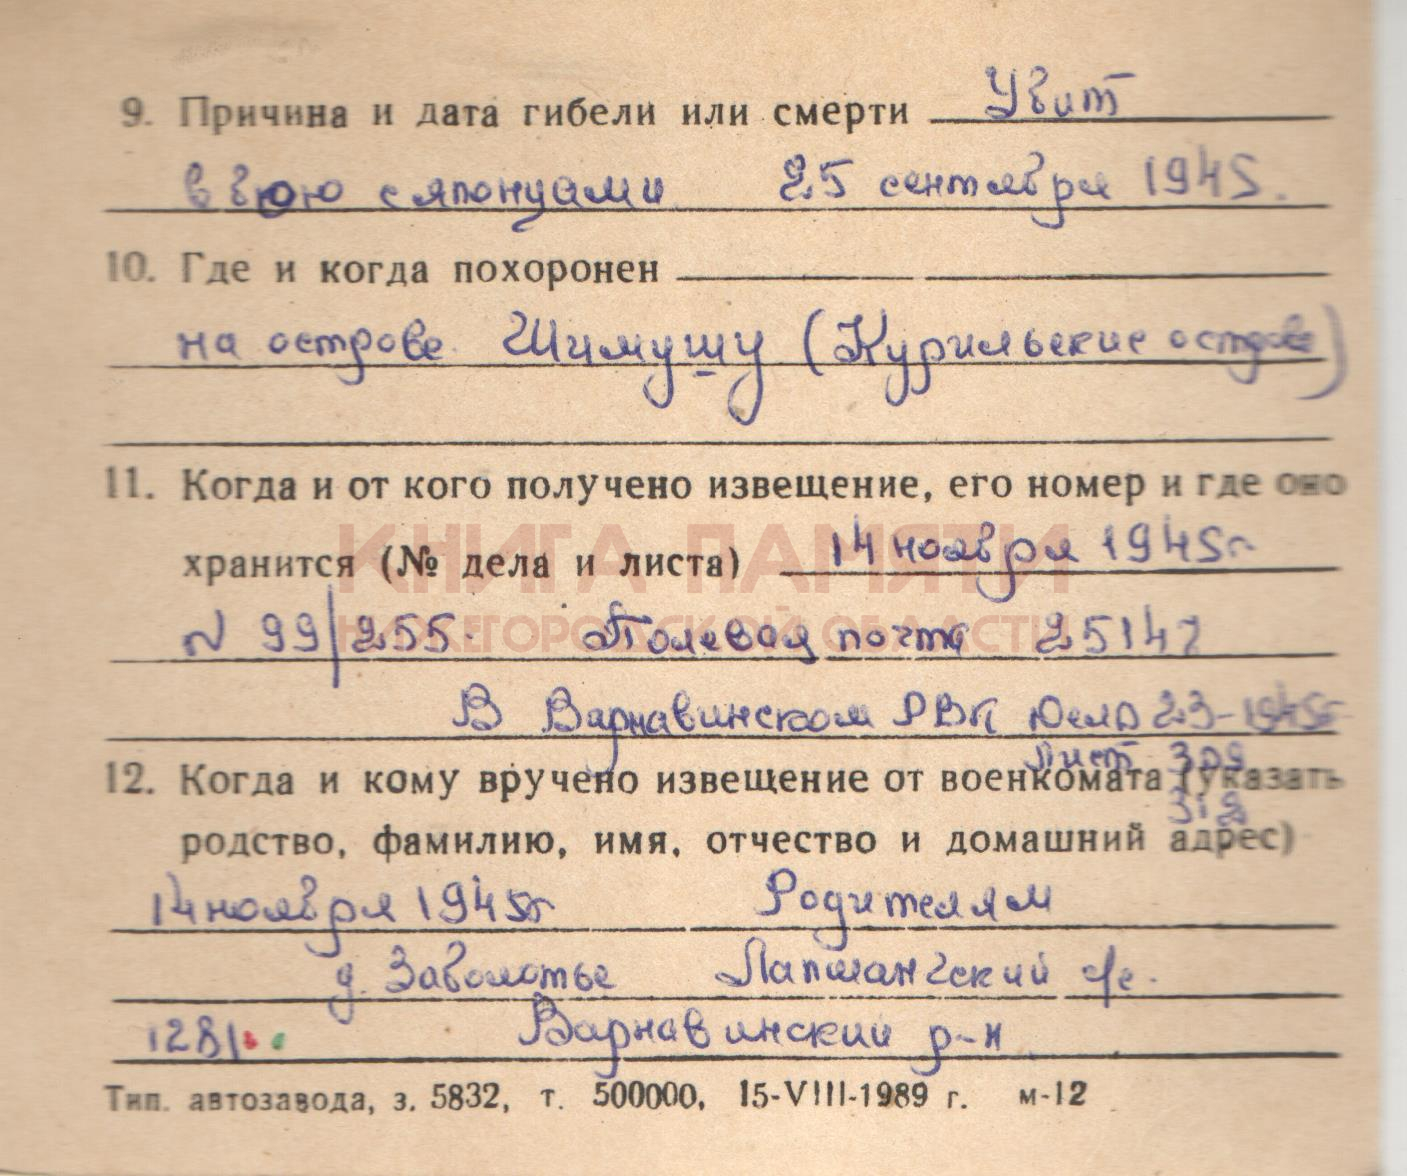 9. Причина и дата гибели или смерти Убит
в бою с японцами 25 сентября 1945.
10. Где и когда похоронен
на острове Шимушу (Курильские острове)
11. Когда и от кого получено извещение, его номер и где оно
КНИГА ПАМЯТИ
хранится (№ дела и листа) 14 ноября 1945г
НИЖЕГОРОДСКОЙ ОБЛАСТИ
N 99/255. Полевая почта 25147
В Варнавинском РВК Дело 23-1945г
Лист 309
12. Когда и кому вручено извещение от военкомата (указать
319
родство, фамилию, имя, отчество и домашний адрес)
14 ноября 1945г Родителям
д. Заболотье Лапшангский с/с.
1281 Варнавинский р-н
Тип. автозавода, з. 5832, т. 500000, 15-VIII-1989 г. м-12